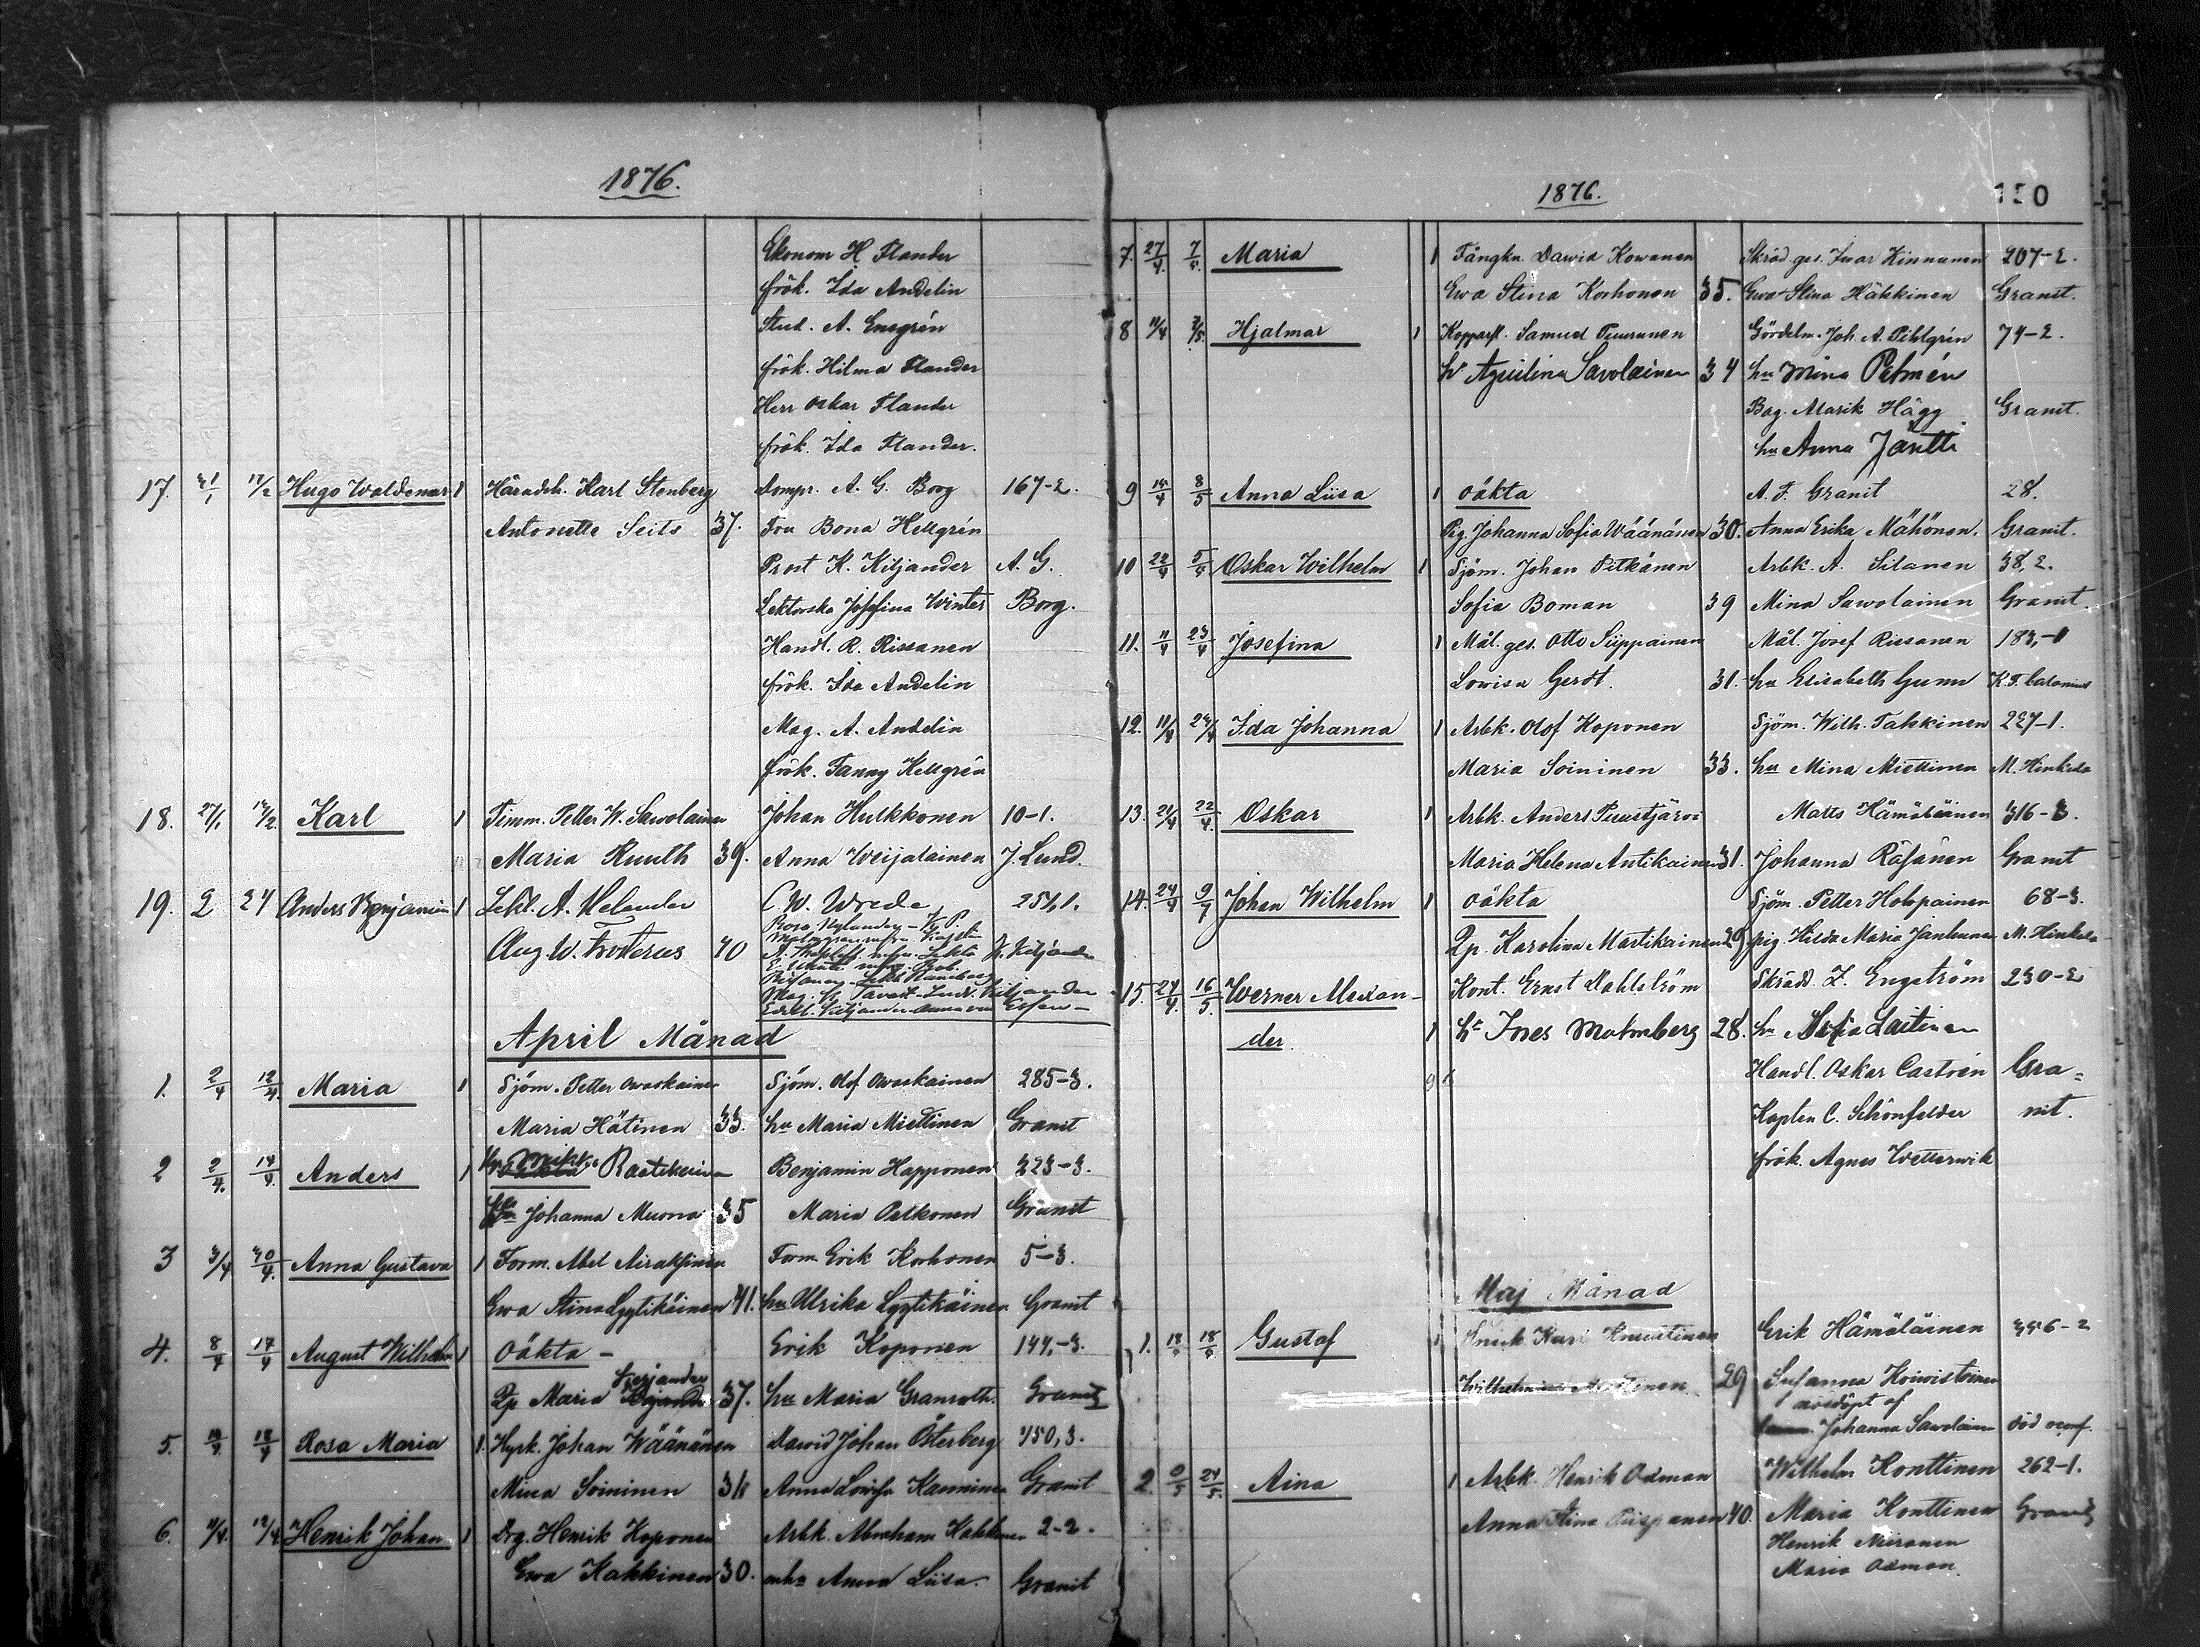 1876.
Ekonom H Flander
frök. Ida Andelin
Stud. A. Enegrén
frök. Hilma Flander
Herr Oskar Flander
frök. Ida Flander.
17. 31/1 17/2 Hugo Waldemar 1 Häradsh. Karl Stenberg Dompr. A. G. Borg 167-2.
Antonette Seits 37. Fru Bona Hellgrén
Prost K. Kiljander A. G.
Lektorska Josefina Winter Borg.
Handl. R. Rissanen
frök. Ida Andelin
Mag. A. Andelin
frök. Fanny Hellgrén
18. 27/1 14/2 Karl 1 Timm. Petter W. Sawolainen Johan Hulkkonen 10-1.
Maria Ruuth 39. Anna Weijalainen J. Lund.
19. 2 24 Anders Benjamin 1 Lekt. A. Helander C. W. Wrede 251,1.
Aug. W. Froterus 40
April Månad
1. 2/4 12/4 Maria 1 Sjöm. Petter Owaskainen Sjöm. Olof Owaskainen 285-3.
Maria Hätinen 33. hu Maria Miettinen Granit
2 2/4 14/4 Anders 1 Raatikainen Benjamin Happonen 323-3.
Johanna Muona 35 Maria Pelkonen Granit
3 3/4 30/4 Anna Gustava 1 Form. Abel Airaksinen Form Erik Korhonen 5-3.
Ewa Stina Lyytikäinen 41. hu Ulrika Lyytikäinen Granit
4. 8/4 17/4 August Wilhelm 1 Oäkta - Erik Koponen 144,-3.
Pp Maria 37. hu Maria Granroth Granit
5. 18/4 Rosa Maria 1. Hyrk. Johan Wäänänen Dawid Johan Österberg 450,3.
Mina Soininen Anna Lowisa Kanninen Granit
6. 11/4. 12/4 Henrik Johan 1 Drg. Henrik Koponen Arbk. Abraham 2-2.
Ewa Kakkinen 30. Anna Liisa. Granit
1876. 150
7. 27/4. 7/5. Maria 1 Fångkn. Dawid Kowanen Skräd. ges. Iwar Kinnunen 207-2.
Ewa Stina Korhonen 35. Ewa Stina Häkkinen Granit.
8 11/4 7/5. Hjalmar 1 Kopparsl. Samuel Tuurunen Gördelm. Joh A. Pihlgrén 74-2.
hr Agustina Savolainen 34 hu Mina Pelmén
Bag. Marik Hägg Granit.
hu Anna Jäntti
9 14/4 8/5 Anna Liisa 1 oäkta A. F. Granit 28.
Pig. Johanna Sofia Wäänänen 30. Anna Erika Mähönen. Granit.
10 22/4 Oskar Wilhelm 1 Sjöm. Johan Pitkänen Arbk. A. Silanen 38,2.
Sofia Boman 39 Mina Sawolainen Granit.
11. 11/4 23/4 Josefina 1 Mål. ges. Otto Siippainen Mål. Josef Rissanen
Lowisa Gerdt. 31. hu Elisabeth Gumn
12. 11/4 24/4 Ida Johanna 1 Arbk. Olof Koponen Sjöm. Wilh. Tahkinen 227-1.
Maria Soininen 33. hu Mina Miettinen M. Hinkula
13. 21/4 22/4. Oskar 1 Arbk. Anders Puustjärwi Matts Hämäläinen 316-3.
Maria Helena Antikainen 31. Johanna Räsänen Granit
14. 24/4 Johan Wilhelm 1 oäkta Sjöm. Petter Holopainen 68-3.
Pp. Karolina Martikainen pig Hilda Maria Janhunen M. Hinkula
15. 24/4. 16/5. Werner Alexan- Kont. Ernst Dahlström Skrädd. Z. Engström 230-2
der. 1 hr Ines Malmberg 28. hu Maria Laitinen
Handl. Oskar Castrén Gra=
Kapten C. Schönfelder nit.
frök. Agnes Wetterwik
Maj Månad
1. Gustaf 1 Erik Hämäläinen 356-2
29 Susanna Koiwistoinen
nöddöpt af
Johanna Savolainen
2. 24/5. Aina 1 Arbk. Henrik Oxman Wilhelm Konttinen 262-1.
Anna Stina 40. Maria Konttinen Granit
Henrik Niiranen
Maria Oxman.